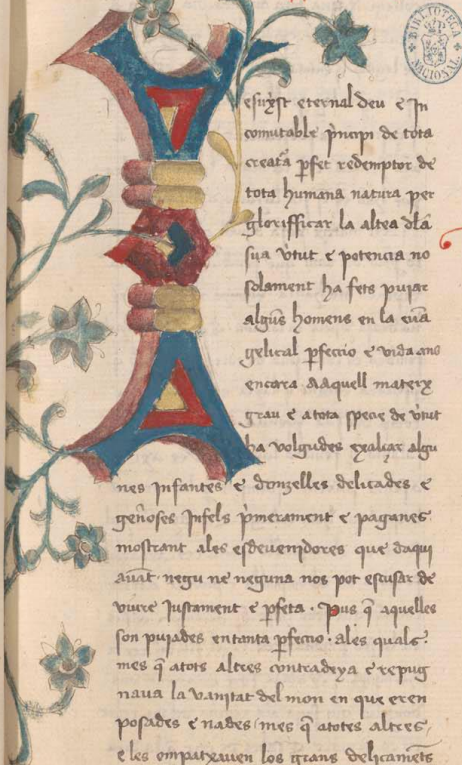 BIBLIOTECA NACIONAL
Iesuxst eternal deu e In
comutable p̃ncipi de tota
creatã pfet redemptor de
tota humana natura per
glorifficar la altea dla
sua v̓tut e potencia no
solament ha fets puiar
algũs homens en la euã
gelical pfeccio e vida ans
encara Aaquell mateix
grau e atota specie de v̓tut
ha volgudes exalçar algu
nes Infantes e donzelles delicades e
geñoses Infels p̃merament e paganes
mostrant ales esdeuenidores que daqui
auãt negu ne neguna nos pot escusar de
viure Iustament e pfeta . Pus q̃ aquelles
son puiades entanta pfeccio . ales quals
mes q̃ atots altres contradeya e repug
naua la vanitat del mon en que eren
posades e nades / mes q̃ atotes altres
e les empatxauen los grans delicamẽts